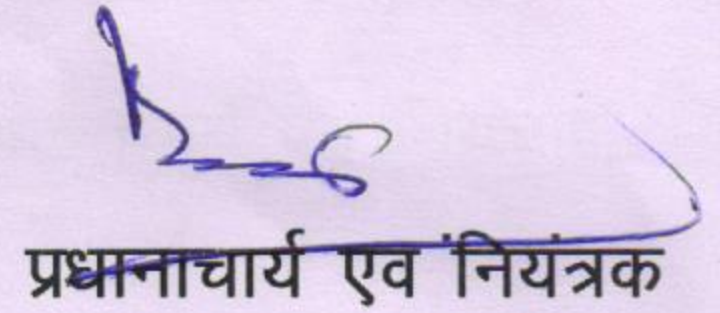 प्रधानाचार्य एव ंनियंत्रक